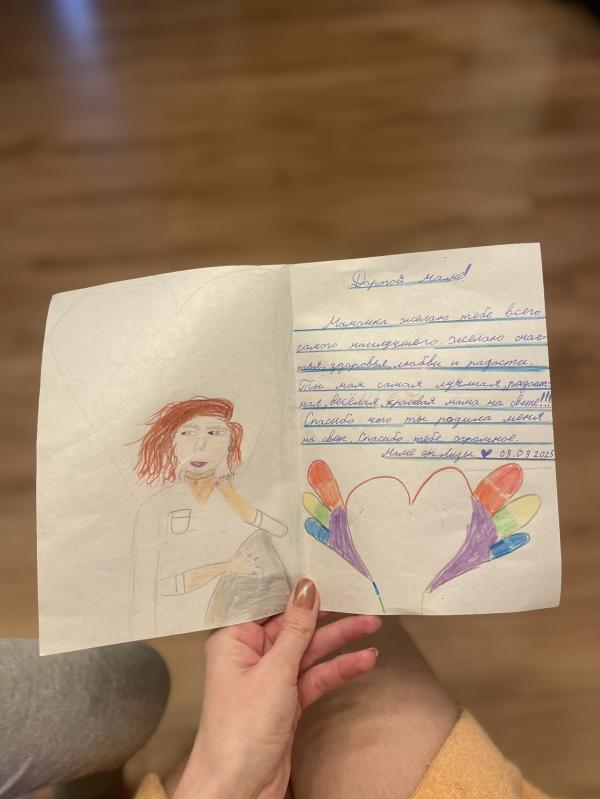 Дорогой маме!
Мамочка желаю тебе всего
самого наилучшего. желаю счас-
тья, здоровья, любви и радости.
Ты моя самая лучшая, радост-
ная, весёлая, красивая мама на свете!!!
Спасибо что ты родила меня
на свет. Спасибо тебе огромное.
Маме от Лизы 08.03 2025